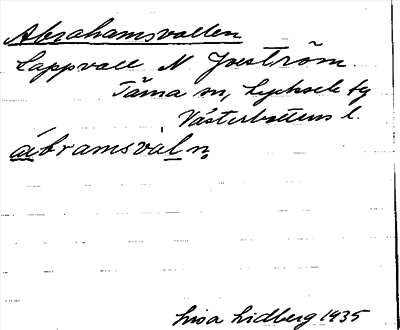 Abrahamsvallen
Lappvall N Joeström.
Tärna sn, Lycksele tg
Västerbottens l.
ábramsvàl n.
Lisa Lidberg 1935